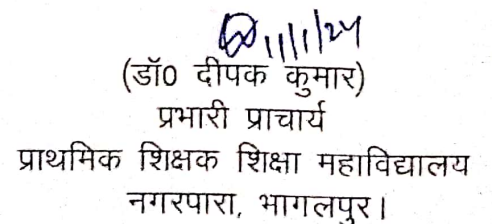 11/1/24
(डॉ0 दीपक कुमार)
प्रभारी प्राचार्य
प्राथमिक शिक्षक शिक्षा महाविद्यालय
नगरपारा, भागलपुर।